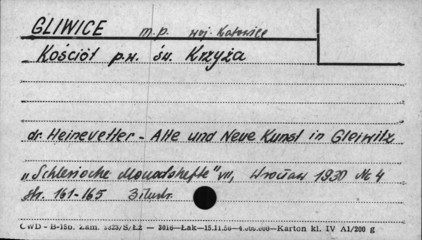 GLIWICE m.p. woj. Katowice
Kościół p.w. św. Krzyża
dr. Heinevetter - Alte und Neue Kunst in Gleiwitz
"Schlesische Monatshefte" VII, Wrocław 1930 № 4
str. 161-165 3 ilustr.
CWD - B-150. Zam. S/Łż — 2016—Łak—15.11.56—4.000.000—Karton kl. IV A1/200 g